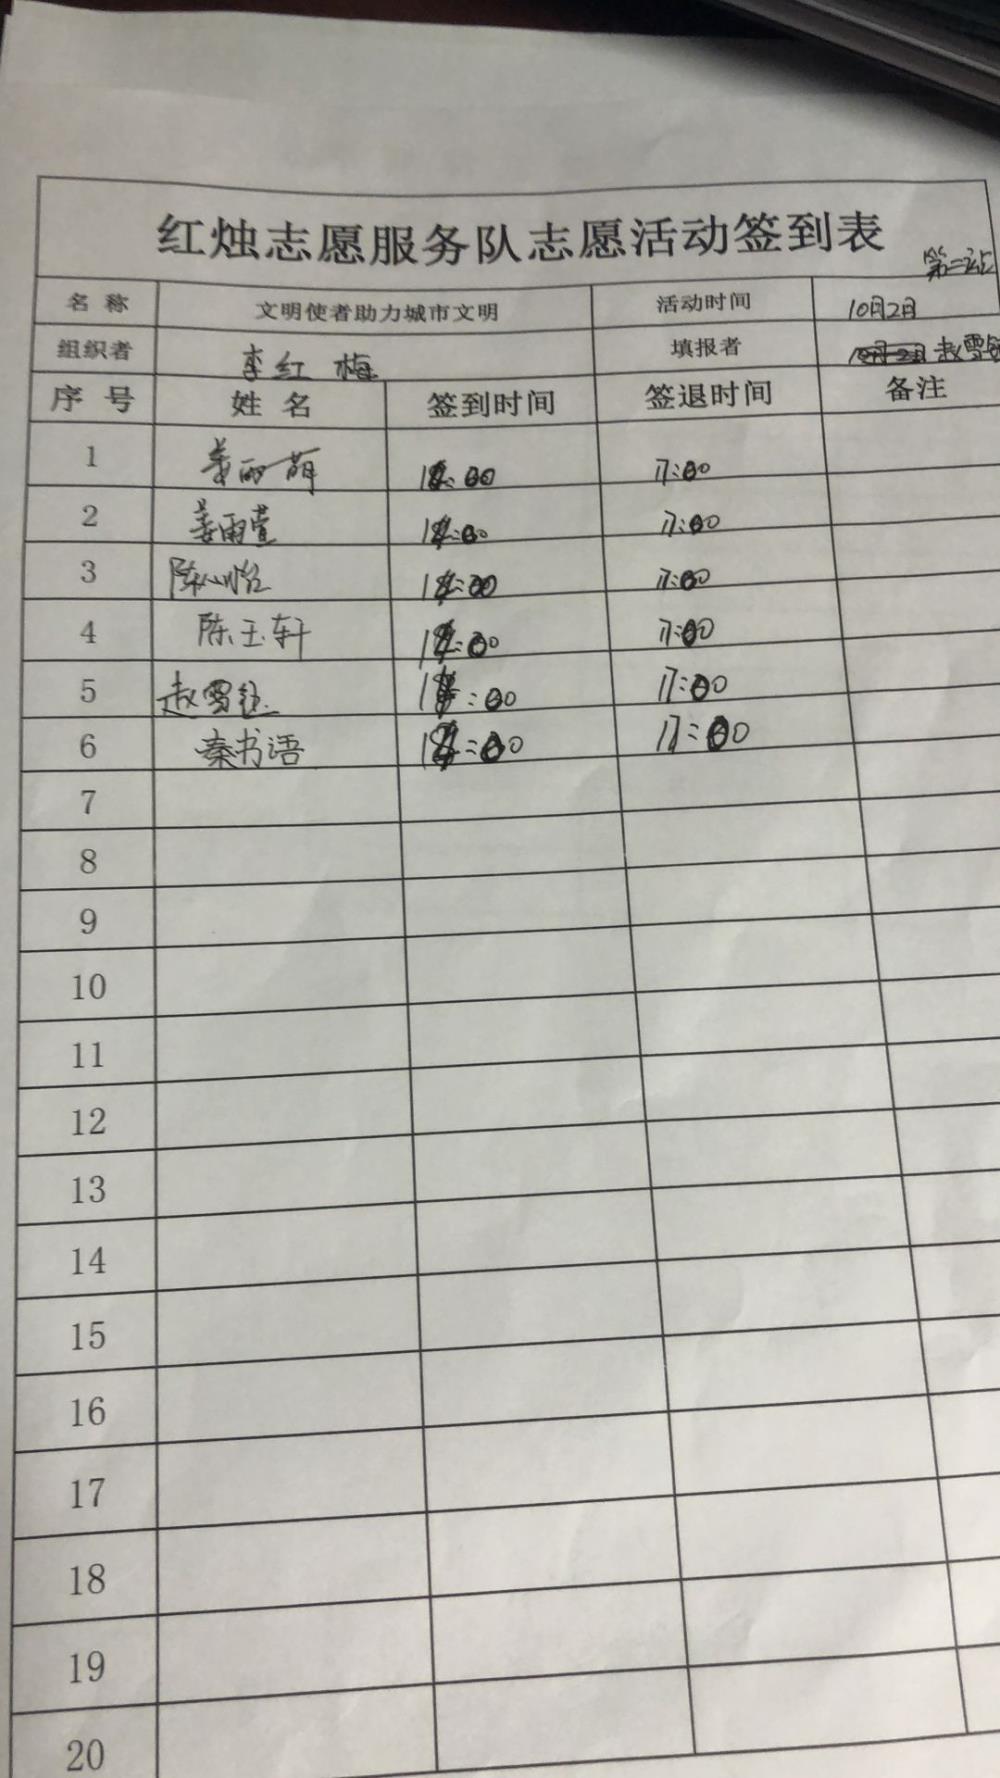 红烛志愿服务队志愿活动签到表
第二站
名称 文明使者助力城市文明 活动时间 10月2日
组织者 李红梅 填报者 赵雪钰
序号 姓名 签到时间 签退时间 备注
1 姜雨萌 :00 17:00
2 姜雨萱 :00 17:00
3 陈心怡 :00 17:00
4 陈玉轩 :00 17:00
5 赵雪钰 :00 17:00
6 秦书语 :00 17:00
7
8
9
10
11
12
13
14
15
16
17
18
19
20